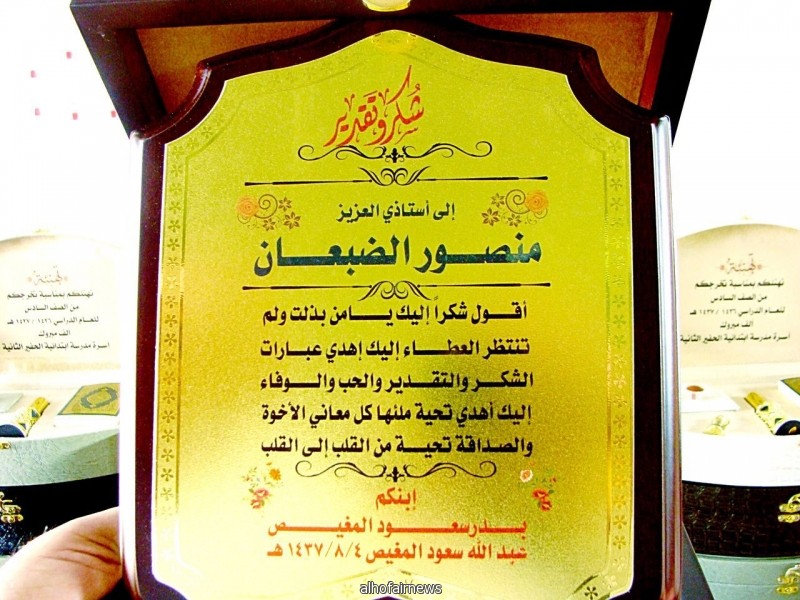 شكر وتقدير
إلى أستاذي العزيز
منصور الضبعان
أقول شكراً إليك يامن بذلت ولم
تنتظر العطاء إليك إهدي عبارات
الشكر والتقدير والحب والوفاء
إليك أهدي تحية ملئها كل معاني الأخوة
والصداقة تحية من القلب إلى القلب
إبنكم
بدر سعود المغيص
عبد الله سعود المغيص ١٤٣٧/٨/٤ هـ
تهنئة
تهنئكم بمناسبة تخرجكم
من الصف السادس
للعام الدراسي ١٤٣٦ / ١٤٣٧ هـ
الف مبروك
أسرة مدرسة ابتدائية الحفير الثانية
تهنئة
تهنئكم بمناسبة تخرجكم
من الصف السادس
للعام الدراسي ١٤٣٦ / ١٤٣٧ هـ
الف مبروك
أسرة مدرسة ابتدائية الحفير الثانية
alhofairnews